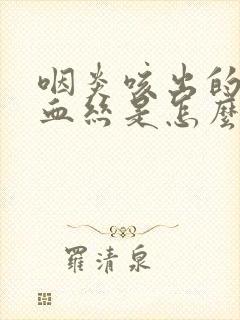 咽炎咳出的
血絲是怎麼
羅清泉